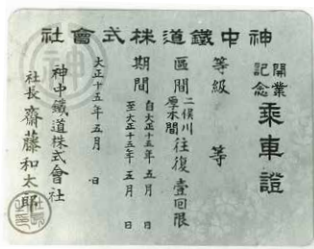 神中鐵道株式會社
開業記念 乘車證
等級 等
區間 二俣川 厚木間 往復壹回限
期間 自大正十五年五月 日
至大正十五年五月 日
大正十五年五月 日
神中鐵道株式會社
社長 齋藤和太郎